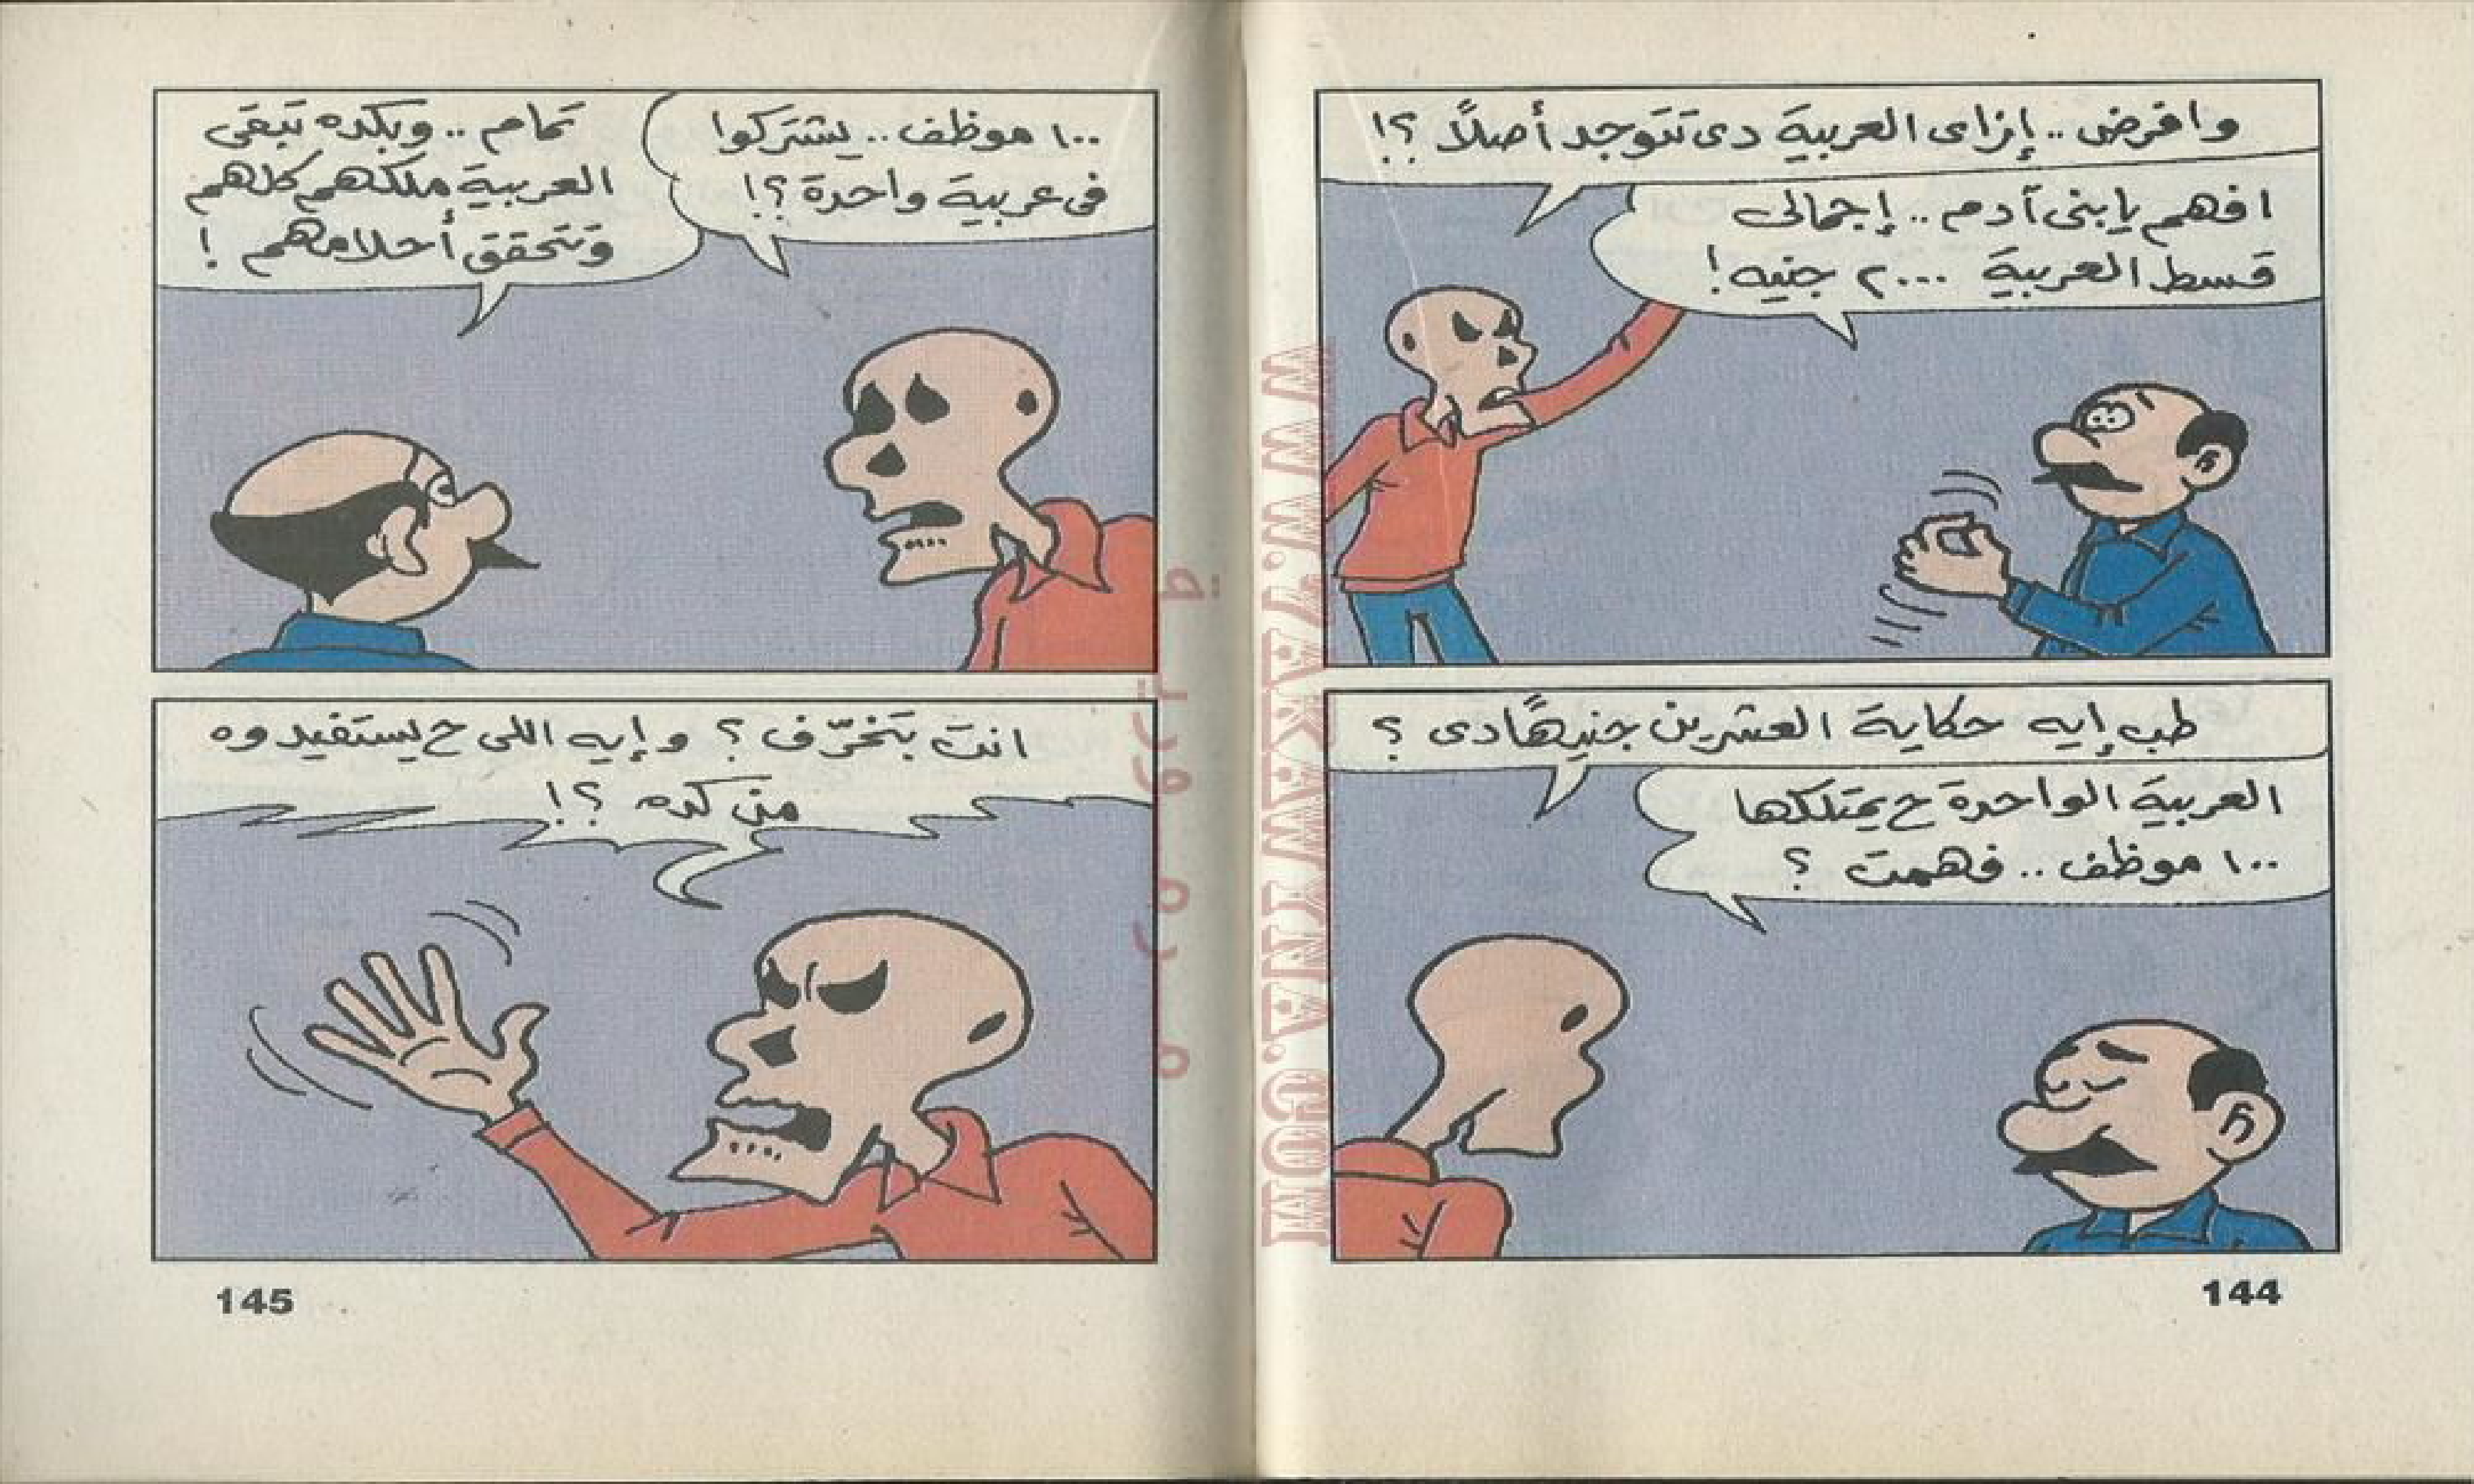 وافرض .. إزاى العربية دى تتوجد أصلاً ؟!
افهم يابنى آدم .. إجمالى
قسط العربية ٢٠٠٠ جنيه !
طب إيه حكاية العشرين جنيهًا دى ؟
العربية الواحدة ح يمتلكها
١٠٠ موظف .. فهمت ؟
144
١٠٠ موظف .. يشتركوا
فى عربية واحدة ؟!
تمام .. وبكده تبقى
العربية ملكهم كلهم
وتتحقق أحلامهم !
انت بتخرّف ؟ وإيه اللى ح يستفيدوه
من كده ؟!
145